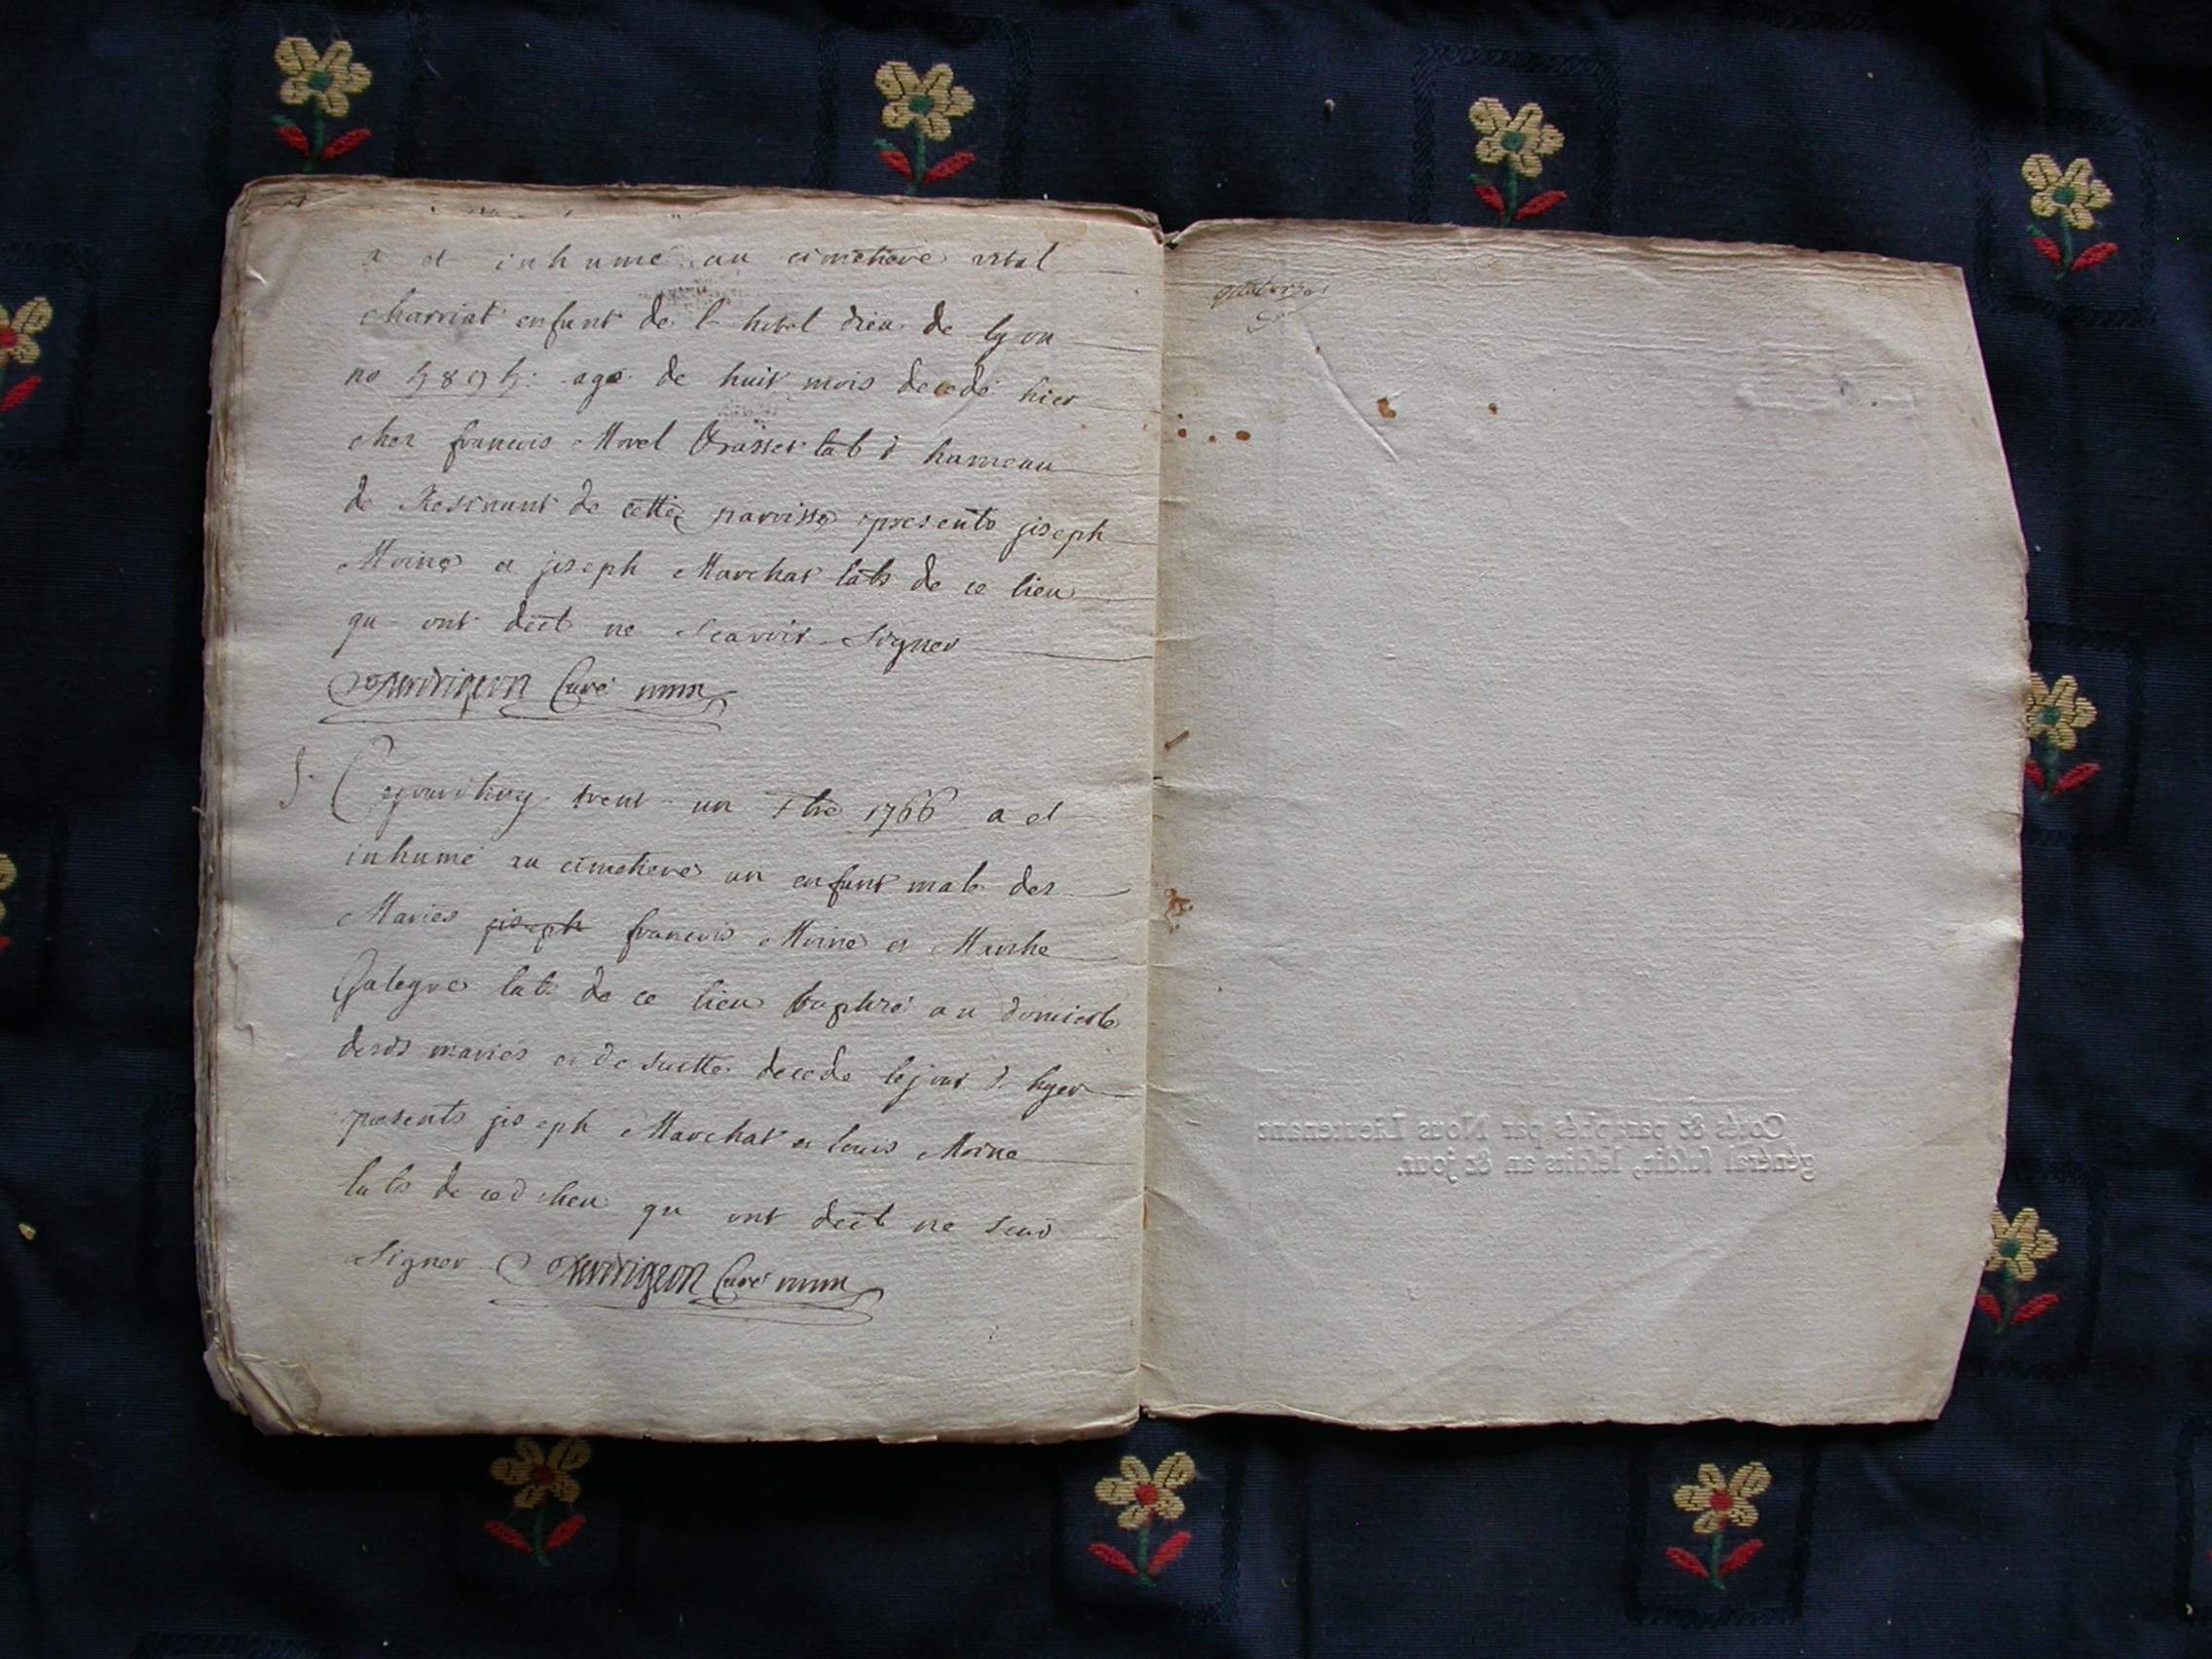 a et inhumé au cimetiere vital
charriat enfant de l hotel dieu de lyon
no 4894: agé de huit mois decedé hier
chez francois Morel Brasset lab d hameau
de de cette parroisse presents joseph
Moine et joseph Marchat labs de ce lieu
qu ont deet ne scavoir signer
Curé
S. Cejourdhuy trent un 1766 a et
inhumé au cimetiere un enfant male des
Maries joseph francois Moine et Marthe
lab de ce lieu baptisé au domicile
desds mariés et de suitte decedé le jour d hyer
presents joseph Marchat et louis Moine
labs de ced lieu qu ont deet ne scav
signer Curé
quatorze
Cotés & paraphés par Nous Lieutenant
général susdit, lesdits an & jour.